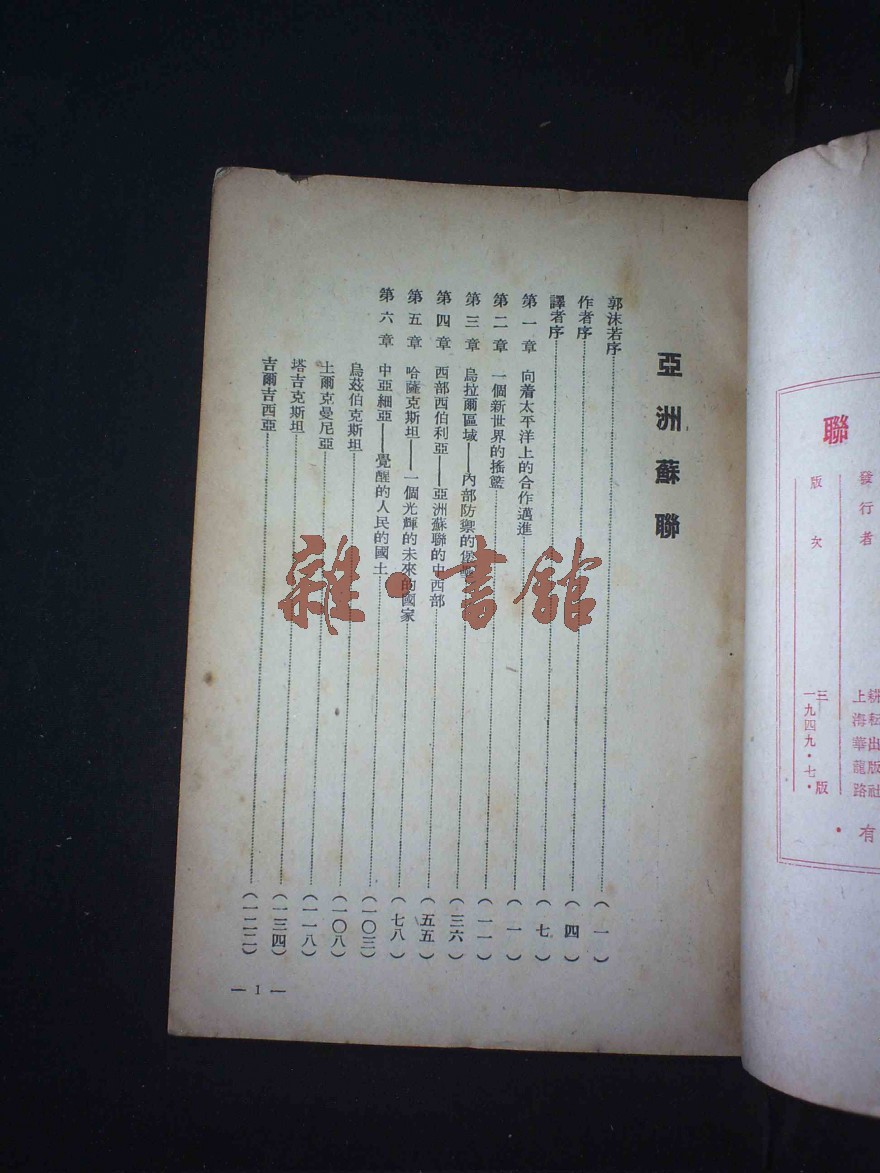 聯
發行者
耕耘出版社
上海華龍路
版次
三版
一九四九·七·
有
亞洲蘇聯
郭沫若序……(一)
作者序……(四)
譯者序……(七)
第一章 向着太平洋上的合作邁進……(一)
第二章 一個新世界的搖籃……(一一)
第三章 烏拉爾區域——內部防禦的……(三六)
第四章 西部西伯利亞——亞洲蘇聯的中西部……(五五)
第五章 哈薩克斯坦——一個光輝的未來的國家……(七八)
第六章 中亞細亞——覺醒的人民的國土……(一〇三)
烏茲伯克斯坦……(一〇八)
土爾克曼尼亞……(一一八)
塔吉克斯坦……(一三四)
吉爾吉西亞……(一二二)
— 1 —
雜·書館